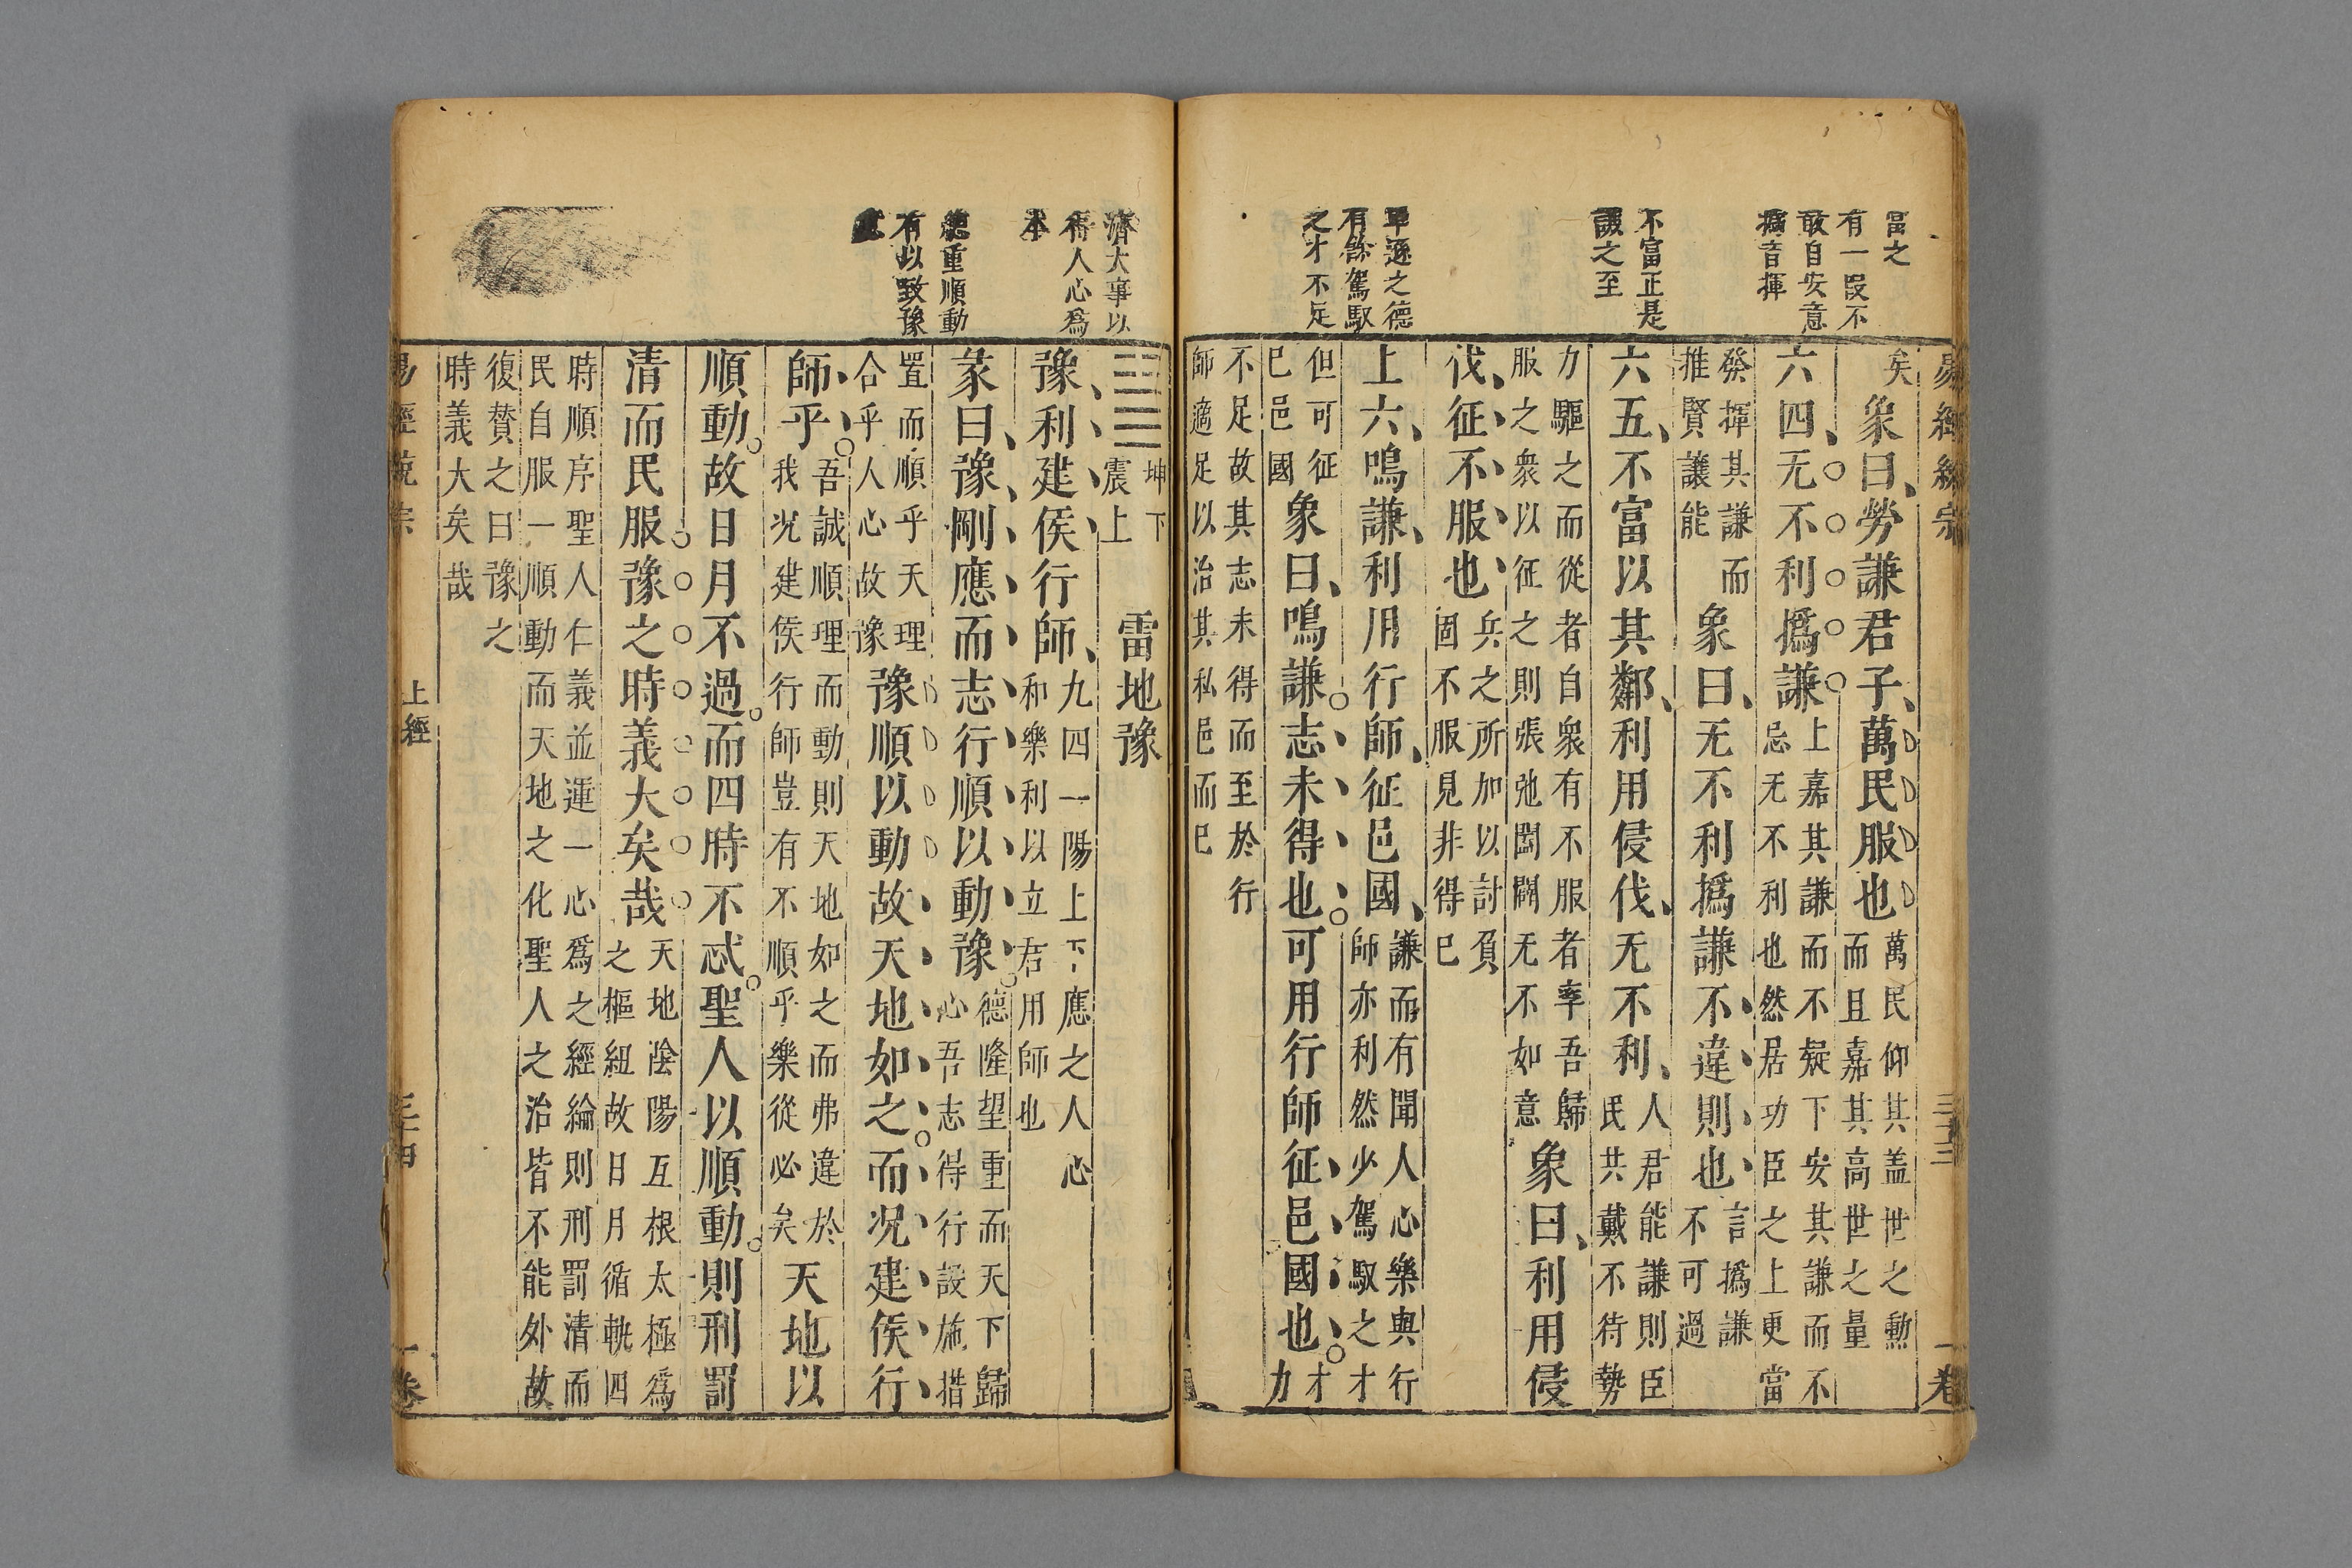 富之
有一叚不
敢自安意
撝音揮
不富正是
謙之至
卑遜之德
有餘駕馭
之才不足
矣
象曰勞謙君子萬民服也
萬民仰其盖世之勲
而且嘉其高世之量
六四无不利撝謙
上嘉其謙而不疑下安其謙而不
忌无不利也然居功臣之上更當
發揮其謙而
推賢讓能
象曰无不利撝謙不違則也
言撝謙
不可過
六五不富以其鄰利用侵伐无不利
人君能謙則臣
民共戴不待勢
力驅之而從者自衆有不服者率吾歸
服之衆以征之則張弛闔闢无不如意
象曰利用侵
伐征不服也
兵之所加以討負
固不服見非得已
上六鳴謙利用行師征邑國
謙而有聞人心樂與行
師亦利然少駕馭之才
但可征
已邑國
象曰鳴謙志未得也可用行師征邑國也
才
力
不足故其志未得而至於行
師適足以治其私邑而已
易經統宗
三十三
一卷
濟大事以
得人心爲
本
總重順動
有以致豫
坤下
震上
雷地豫
豫利建侯行師
九四一陽上下應之人心
和樂利以立君用師也
彖曰豫剛應而志行順以動豫
德隆望重而天下歸
心吾志得行設施措
置而順乎天理
合乎人心故豫
豫順以動故天地如之而况建侯行
師乎
吾誠順理而動則天地如之而弗違於
我况建侯行師豈有不順乎樂從必矣
天地以
順動故日月不過而四時不忒聖人以順動則刑罰
清而民服豫之時義大矣哉
天地陰陽互根太極爲
之樞紐故日月循軌四
時順序聖人仁義並運一心爲之經綸則刑罰清而
民自服一順動而天地之化聖人之治皆不能外故
復賛之曰豫之
時義大矣哉
易經統宗
上經
三十四
一卷